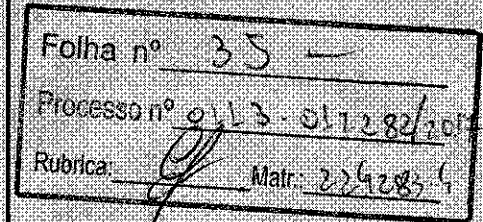 Folha nº 35 —
Processo nº 0113-011282/2017
Rubrica: Matr.: 224283-4